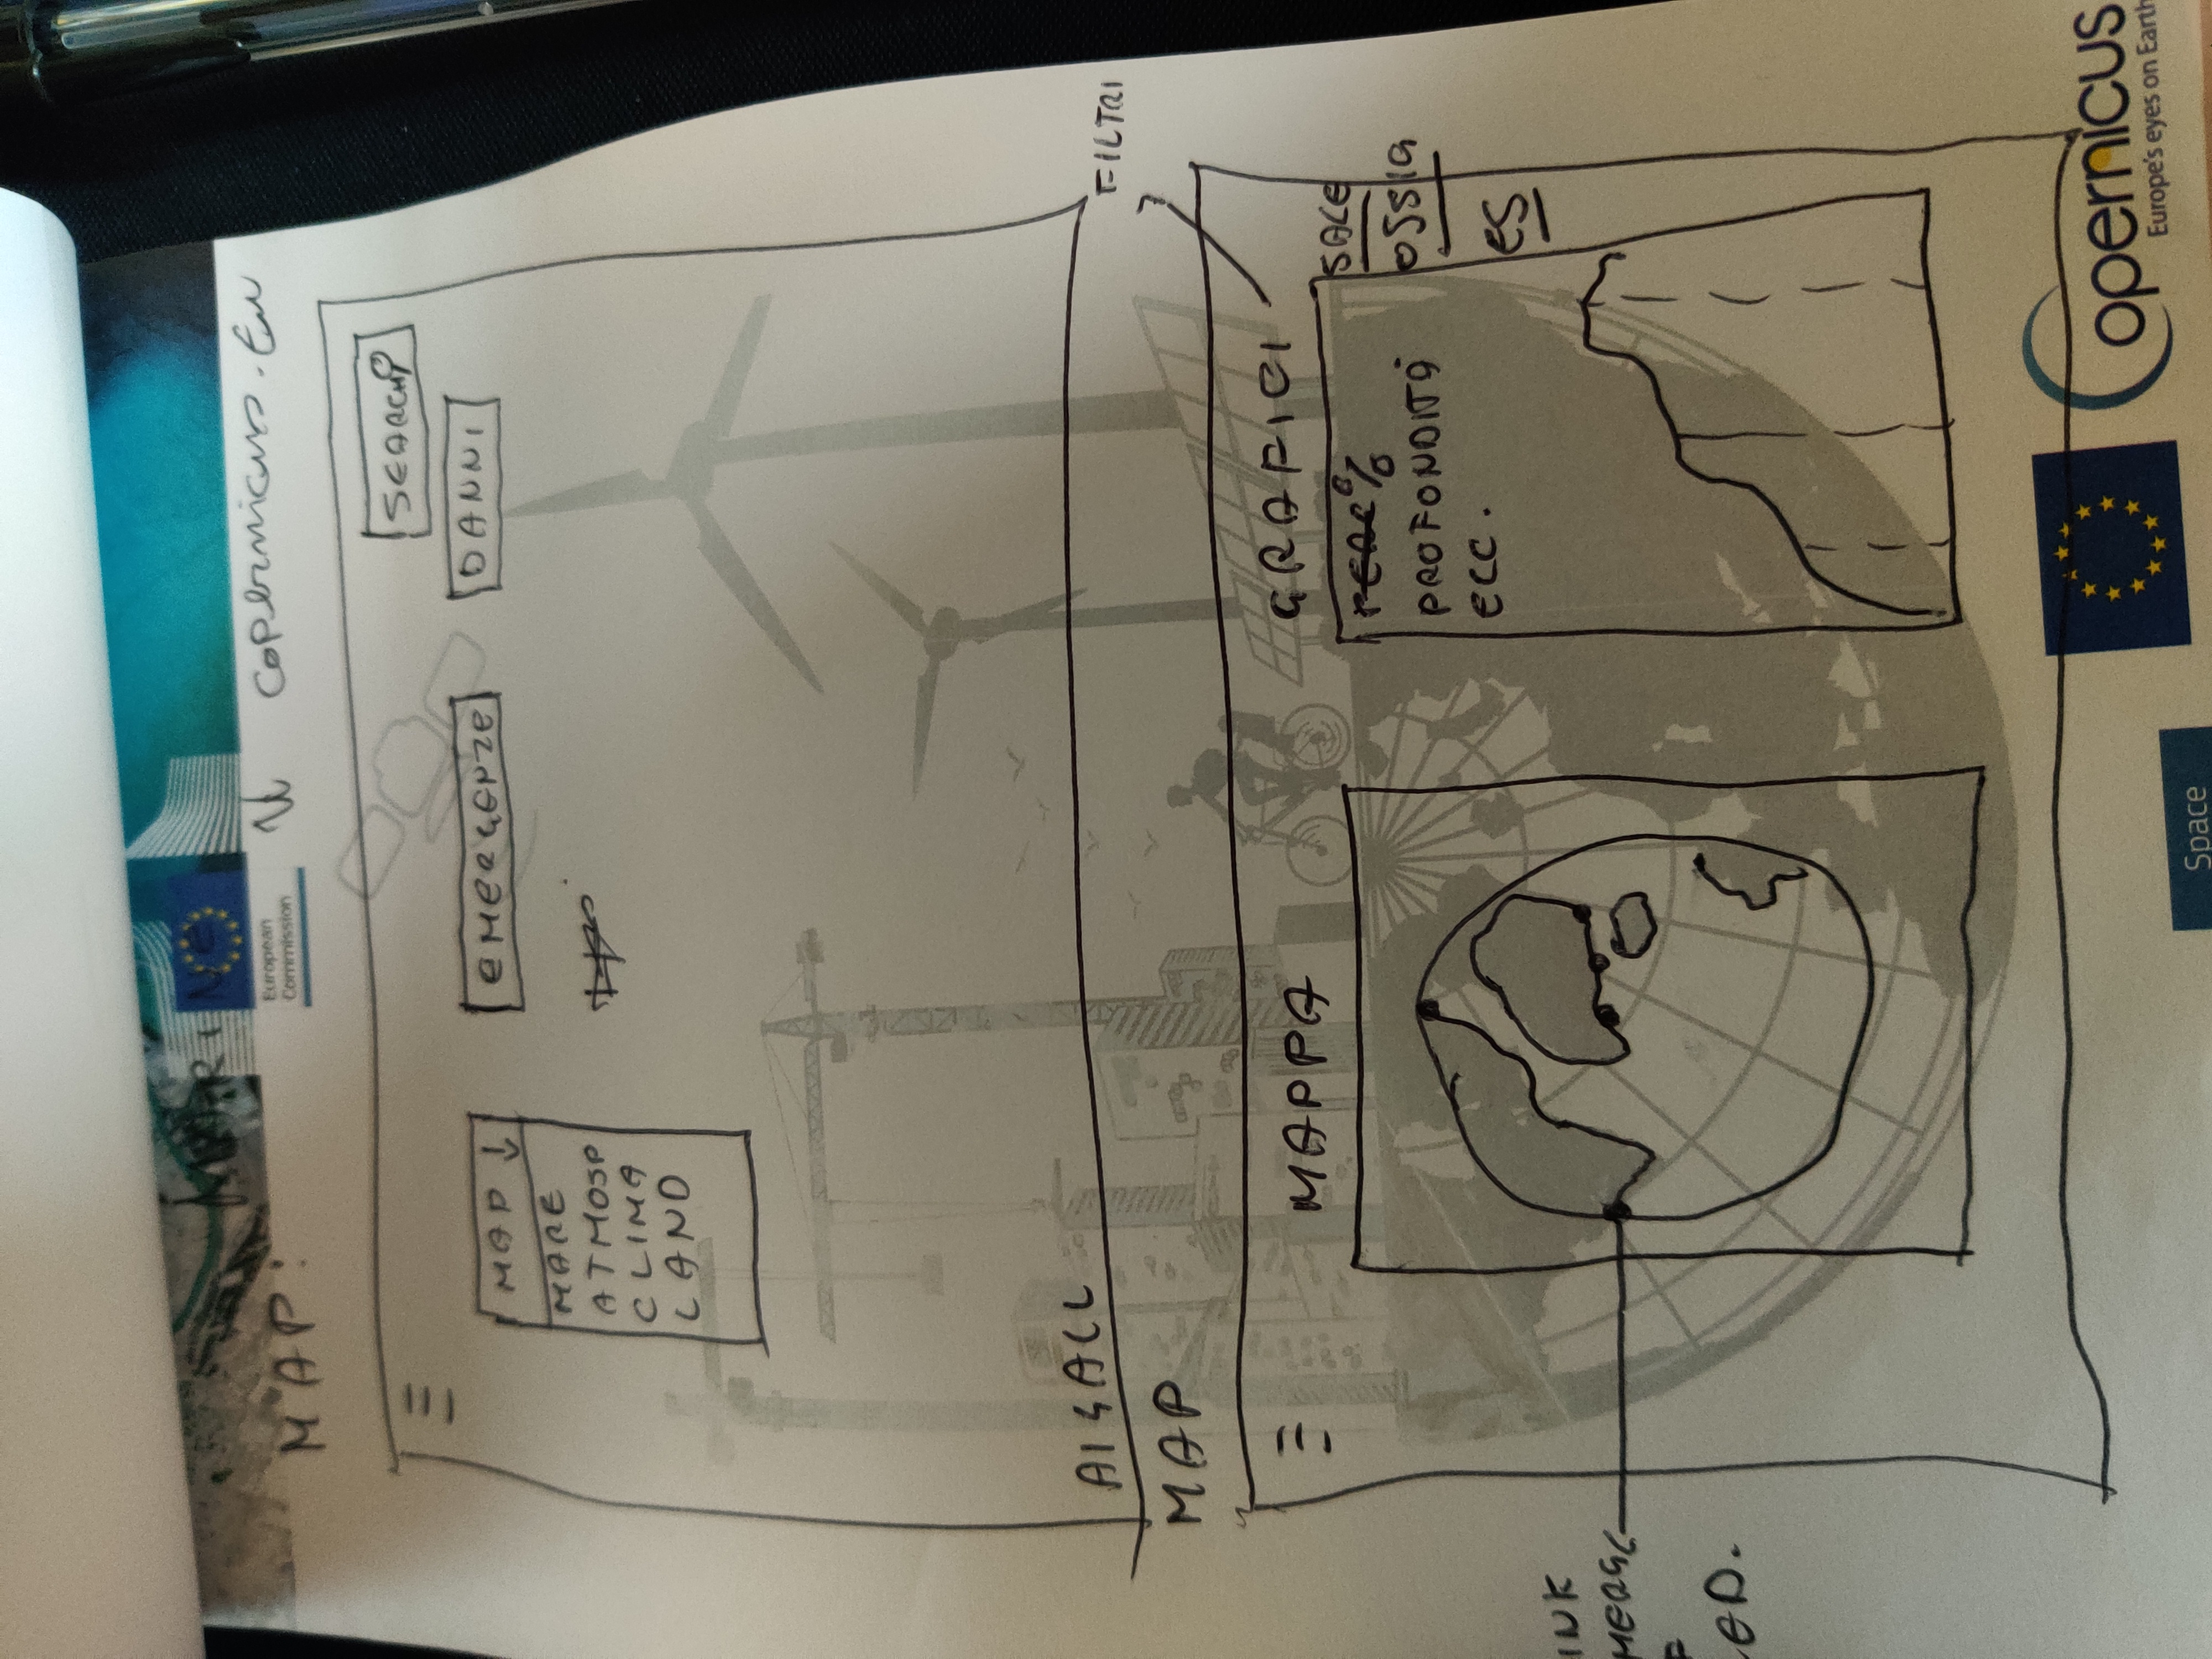 MARINE
European
Commission
MAP:
Copernicus.Eu
SEARCH
MAP ↓
EMERGENZE
DANNI
MARE
ATMOSP
CLIMA
LAND
AIGALL
FILTRI
MAP
MAPPA
GRAFICI
%
PROFONDITÀ
ECC.
SALE
OSSIG
ES
INK
MERG
ED.
Copernicus
Europe's eyes on Earth
Space